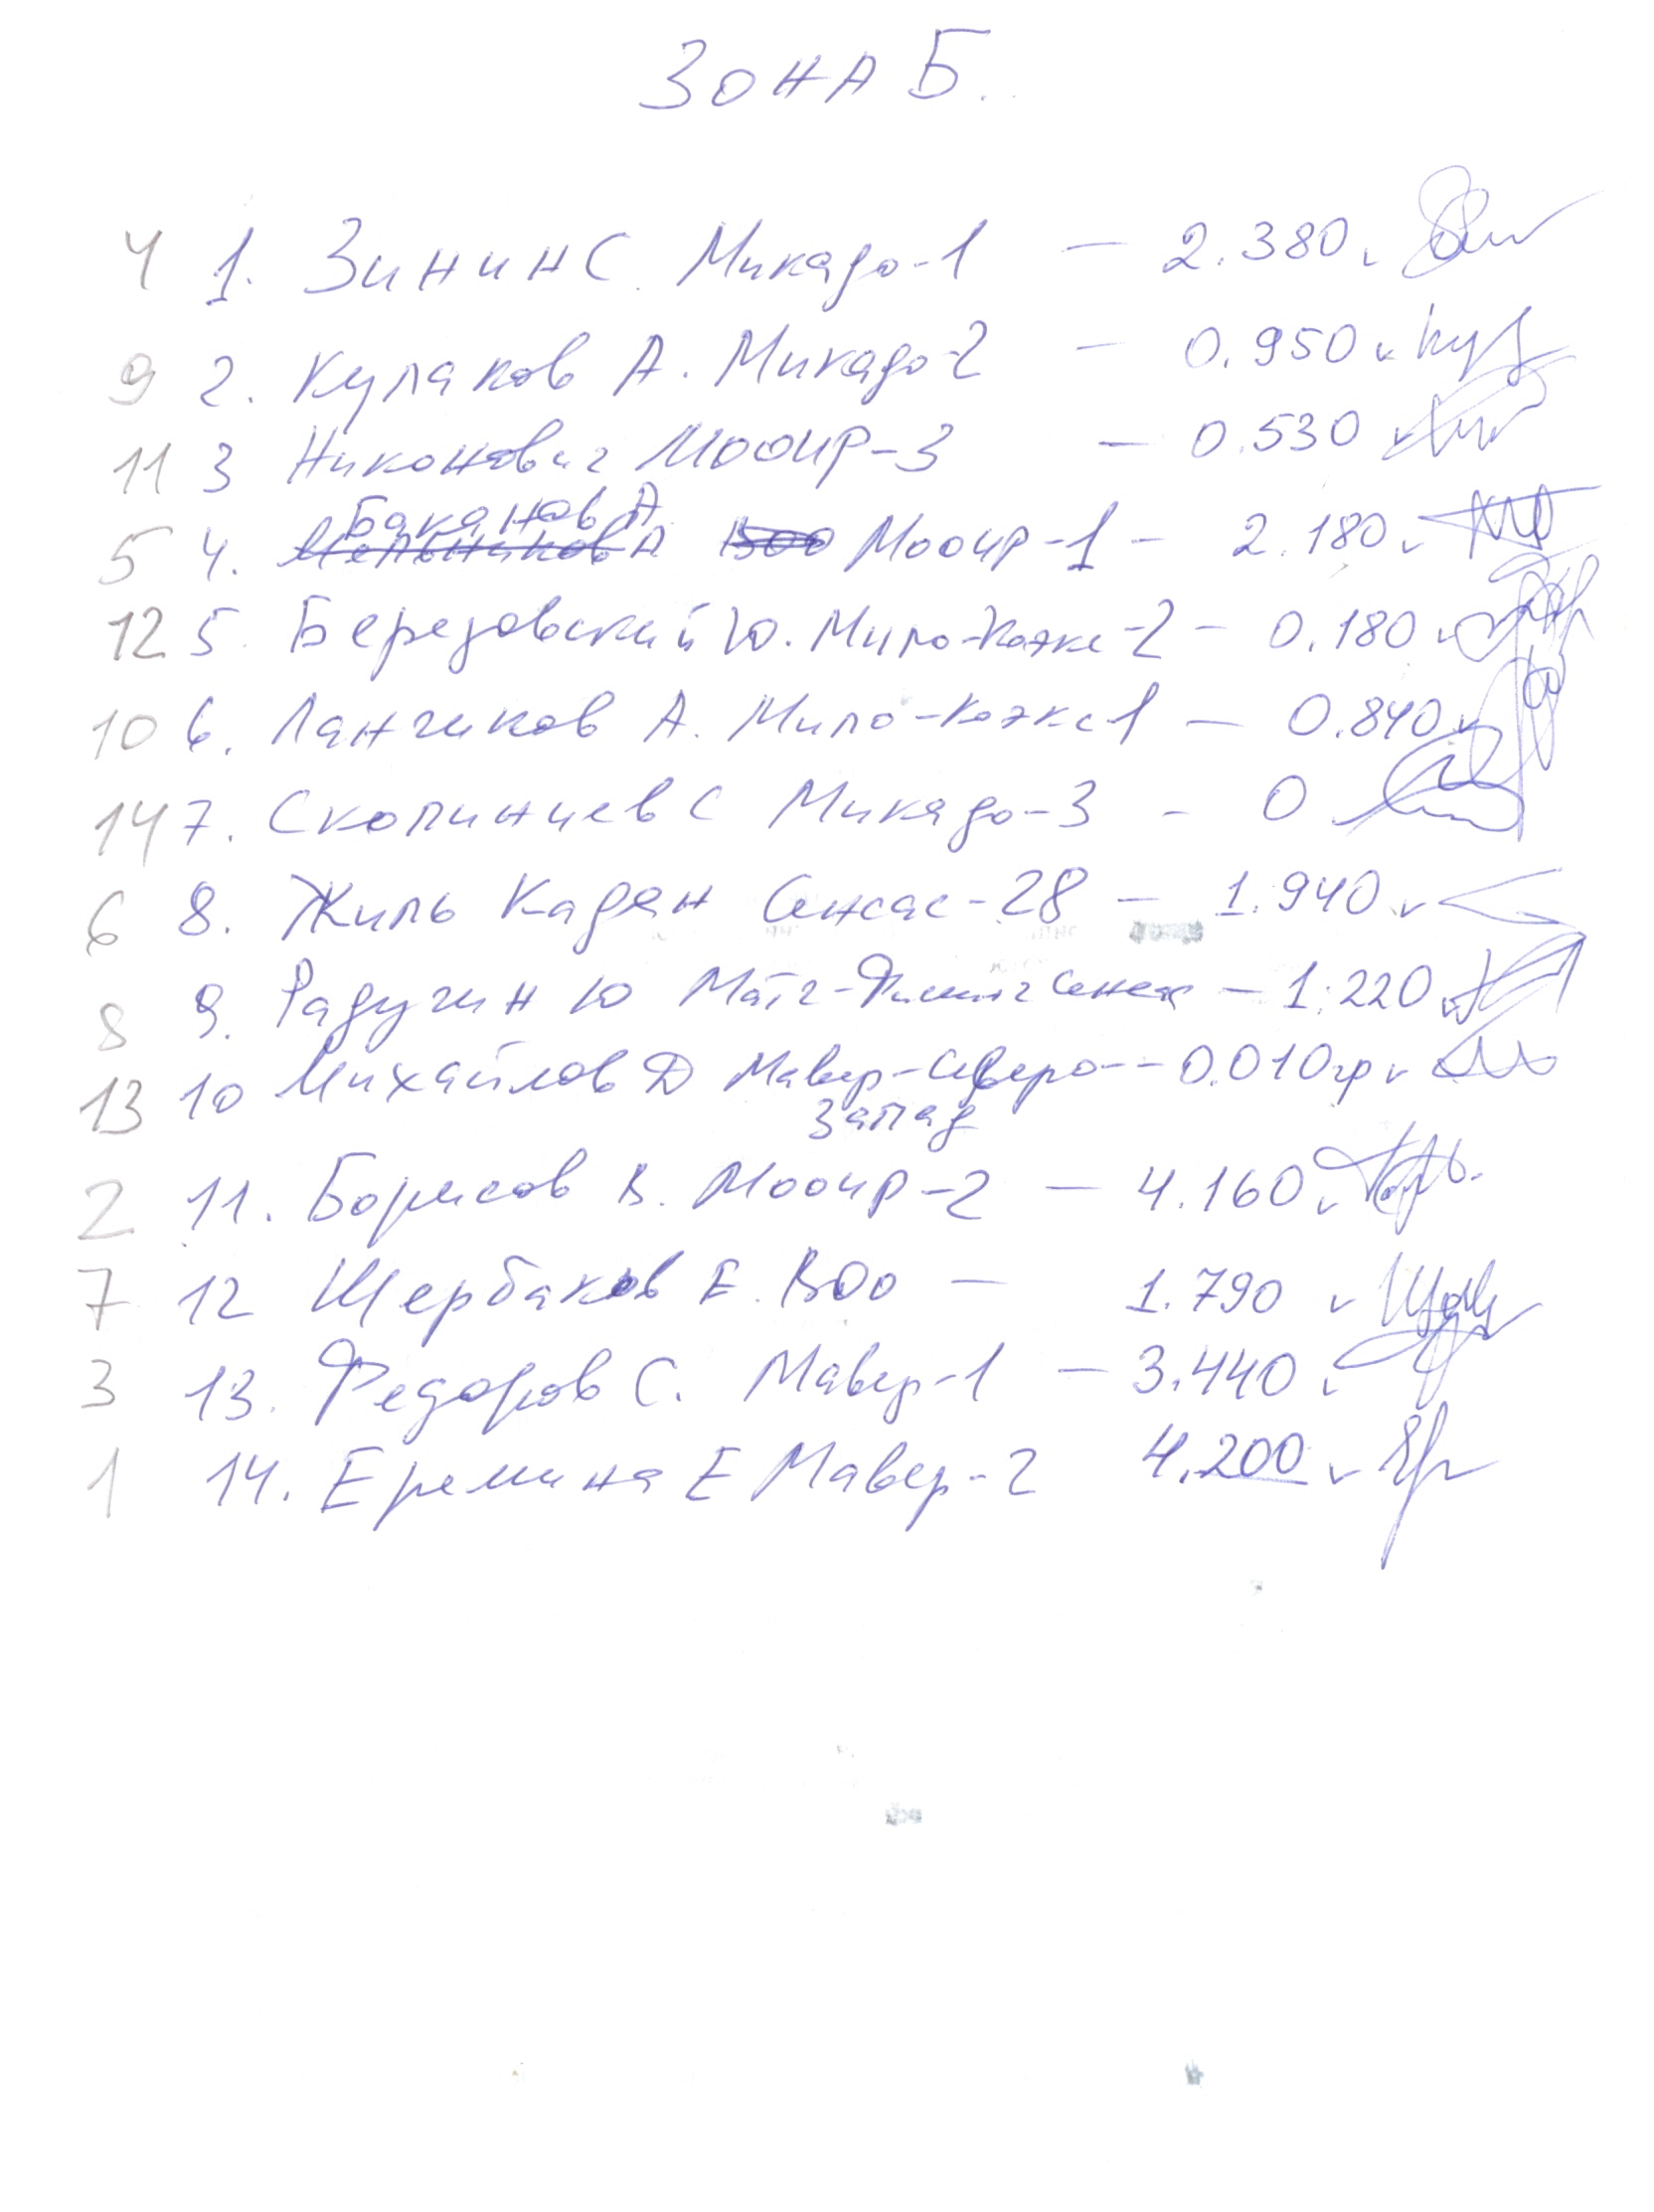 Зона Б.
4 1. Зинин С. Микадо-1 — 2.380
9 2. Кулаков А. Микадо-2 — 0.950
11 3 Никонович МООИР-3 — 0.530
Баканов А
5 4. Мельников А ВОО Мооир-1 — 2.180
12 5. Березовский Ю. Мило-Коэкс-2 — 0.180
10 6. Ланчиков А. Мило-Коэкс-1 — 0.840
14 7. Скопинцев С Микадо-3 - 0
6 8. Жиль Кадан Сенсас-28 — 1.940
8 9. Радугин Ю Матч-Фишинг — 1.220
13 10 Михайлов Д Мавер-Северо-- 0.010гр
Запад
2 11. Борисов В. Мооир-2 — 4.160
7 12 Щербаков Е. ВОО — 1.790
3 13. Федоров С. Мавер-1 — 3.440
1 14. Еремина Е Мавер-2 4.200